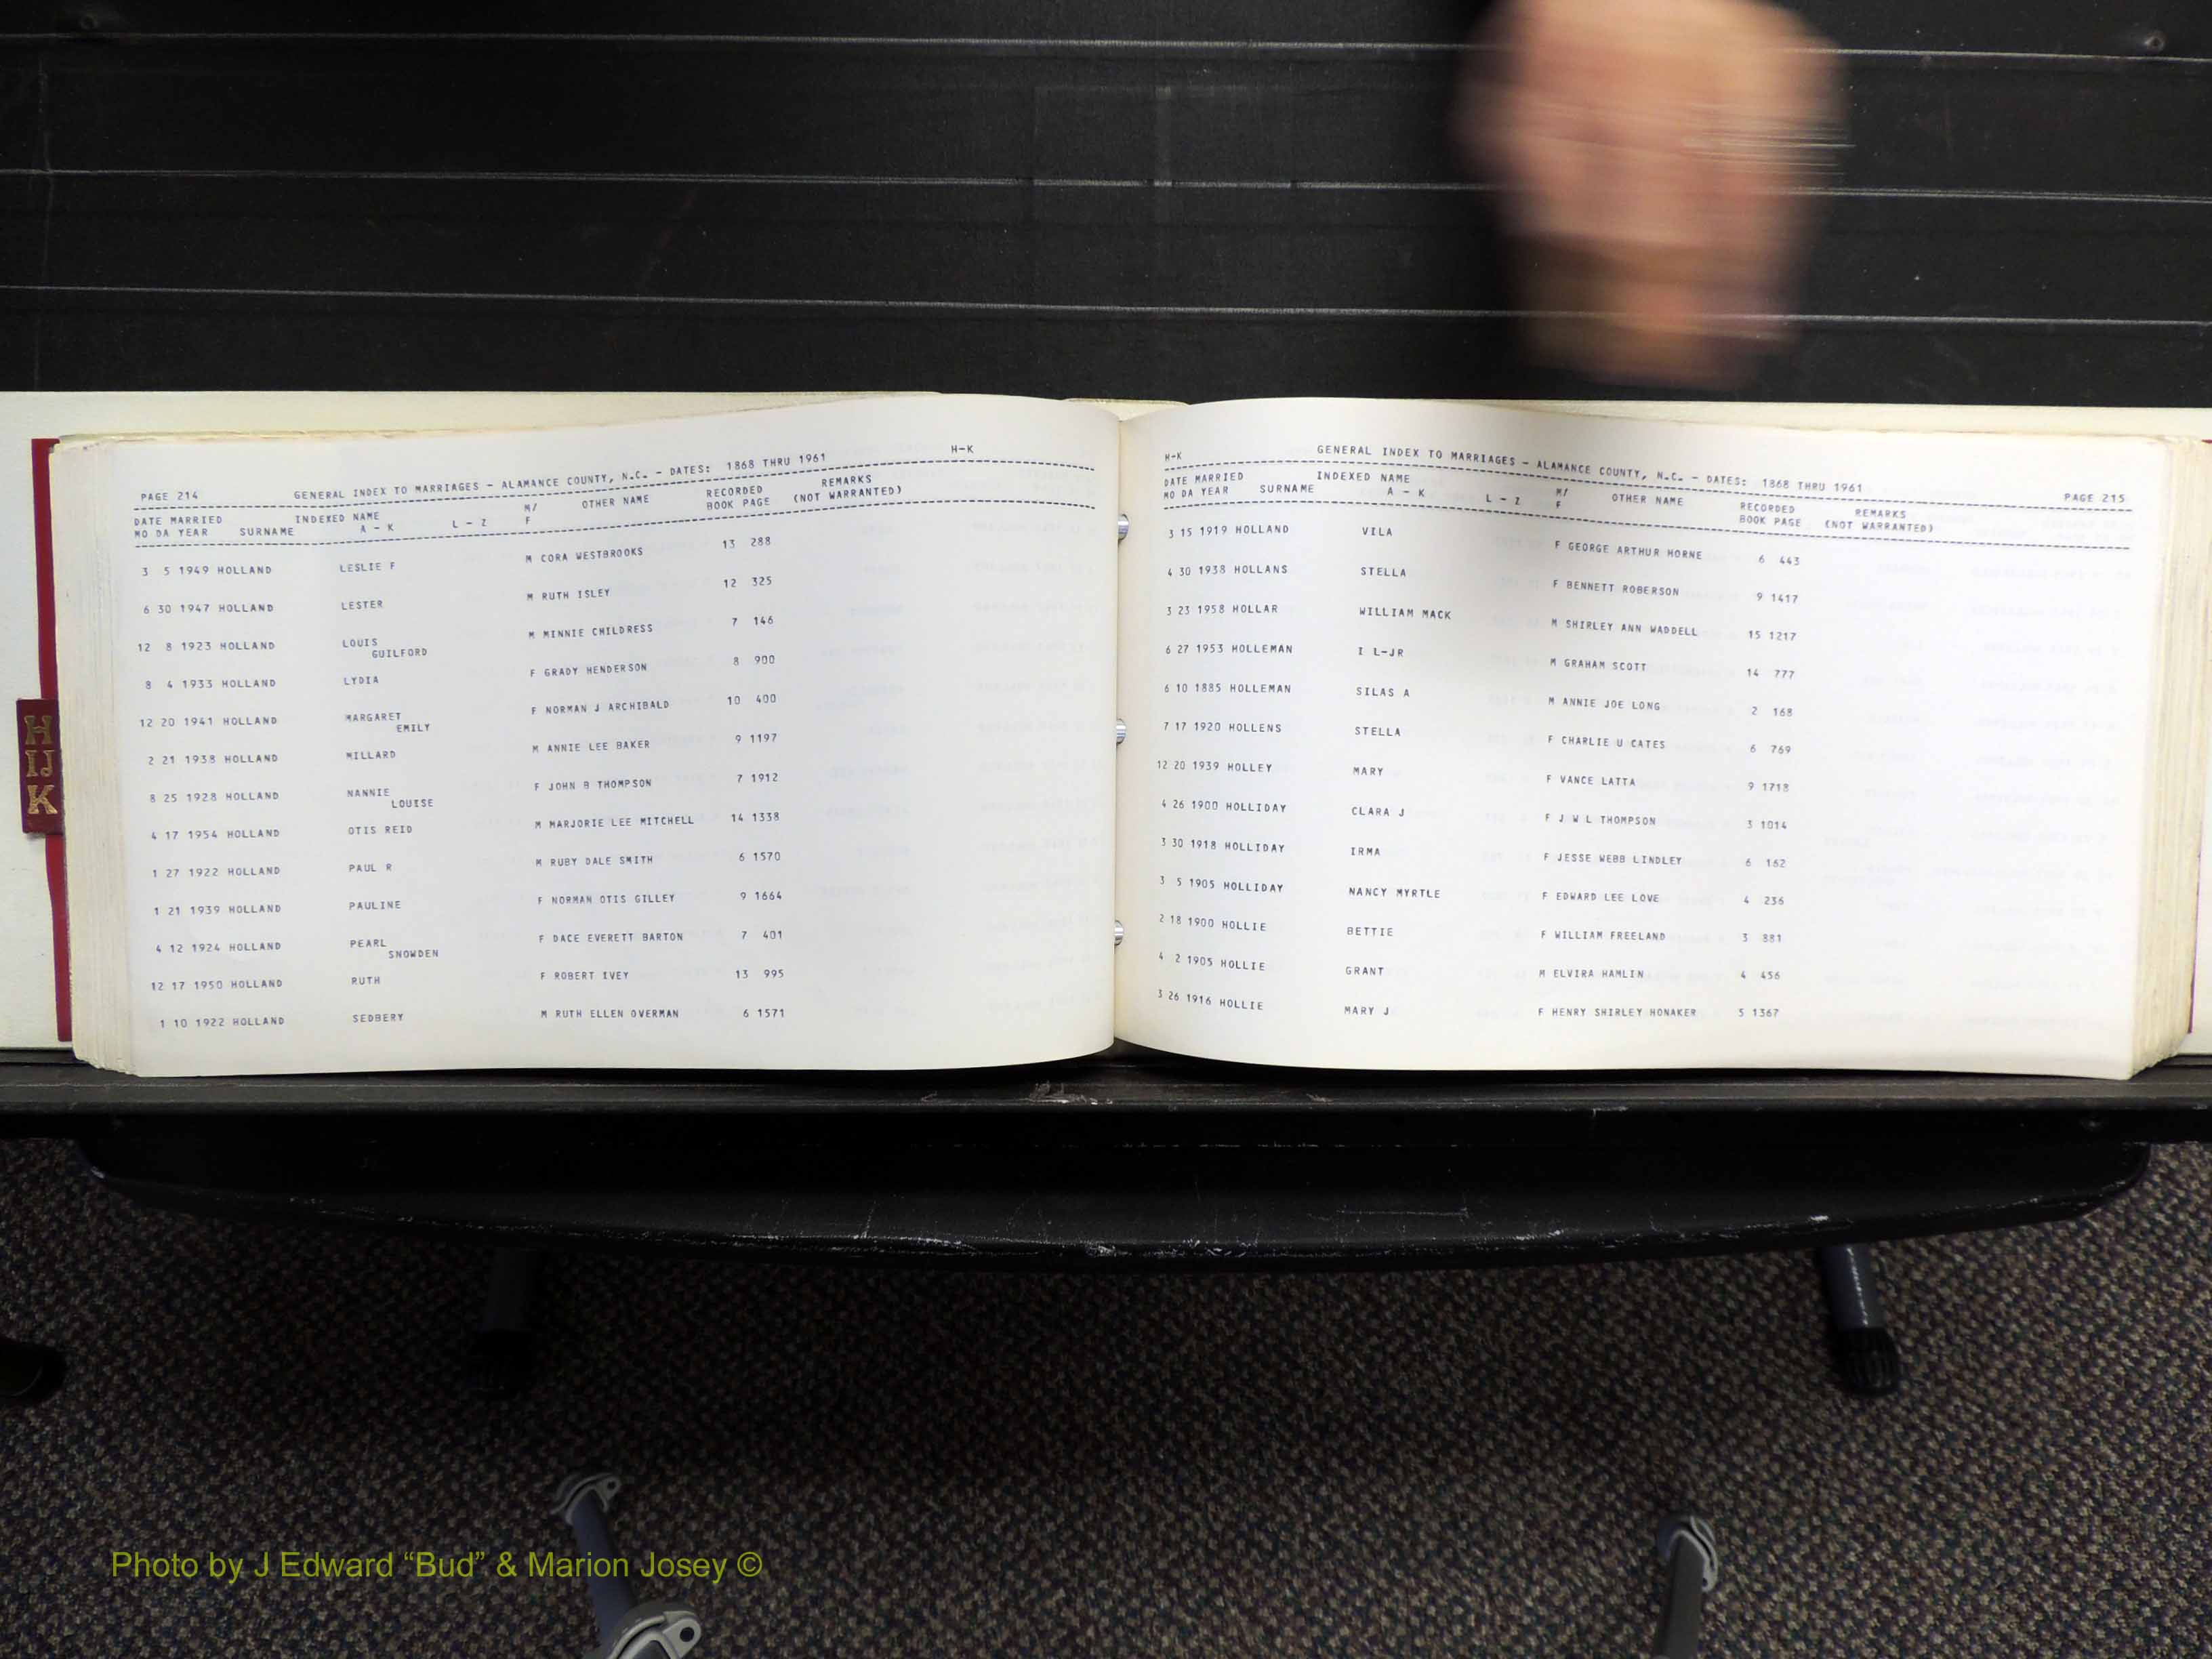 H
IJ
K
H-K
PAGE 214 GENERAL INDEX TO MARRIAGES - ALAMANCE COUNTY, N.C. - DATES: 1868 THRU 1961
DATE MARRIED INDEXED NAME M/ OTHER NAME RECORDED REMARKS
MO DA YEAR SURNAME A - K L - Z F BOOK PAGE (NOT WARRANTED)
3 5 1949 HOLLAND LESLIE F M CORA WESTBROOKS 13 288
6 30 1947 HOLLAND LESTER M RUTH ISLEY 12 325
12 8 1923 HOLLAND LOUIS M MINNIE CHILDRESS 7 146
GUILFORD
8 4 1933 HOLLAND LYDIA F GRADY HENDERSON 8 900
12 20 1941 HOLLAND MARGARET F NORMAN J ARCHIBALD 10 400
EMILY
2 21 1938 HOLLAND MILLARD M ANNIE LEE BAKER 9 1197
8 25 1928 HOLLAND NANNIE F JOHN B THOMPSON 7 1912
LOUISE
4 17 1954 HOLLAND OTIS REID M MARJORIE LEE MITCHELL 14 1338
1 27 1922 HOLLAND PAUL R M RUBY DALE SMITH 6 1570
1 21 1939 HOLLAND PAULINE F NORMAN OTIS GILLEY 9 1664
4 12 1924 HOLLAND PEARL F DACE EVERETT BARTON 7 401
SNOWDEN
12 17 1950 HOLLAND RUTH F ROBERT IVEY 13 995
1 10 1922 HOLLAND SEDBERY M RUTH ELLEN OVERMAN 6 1571
H-K GENERAL INDEX TO MARRIAGES - ALAMANCE COUNTY, N.C. - DATES: 1868 THRU 1961 PAGE 215
DATE MARRIED INDEXED NAME M/ OTHER NAME RECORDED REMARKS
MO DA YEAR SURNAME A - K L - Z F BOOK PAGE (NOT WARRANTED)
3 15 1919 HOLLAND VILA F GEORGE ARTHUR HORNE 6 443
4 30 1938 HOLLANS STELLA F BENNETT ROBERSON 9 1417
3 23 1958 HOLLAR WILLIAM MACK M SHIRLEY ANN WADDELL 15 1217
6 27 1953 HOLLEMAN I L-JR M GRAHAM SCOTT 14 777
6 10 1885 HOLLEMAN SILAS A M ANNIE JOE LONG 2 168
7 17 1920 HOLLENS STELLA F CHARLIE U CATES 6 769
12 20 1939 HOLLEY MARY F VANCE LATTA 9 1718
4 26 1900 HOLLIDAY CLARA J F J W L THOMPSON 3 1014
3 30 1918 HOLLIDAY IRMA F JESSE WEBB LINDLEY 6 162
3 5 1905 HOLLIDAY NANCY MYRTLE F EDWARD LEE LOVE 4 236
2 18 1900 HOLLIE BETTIE F WILLIAM FREELAND 3 881
4 2 1905 HOLLIE GRANT M ELVIRA HAMLIN 4 456
3 26 1916 HOLLIE MARY J F HENRY SHIRLEY HONAKER 5 1367
Photo by J Edward “Bud” & Marion Josey ©